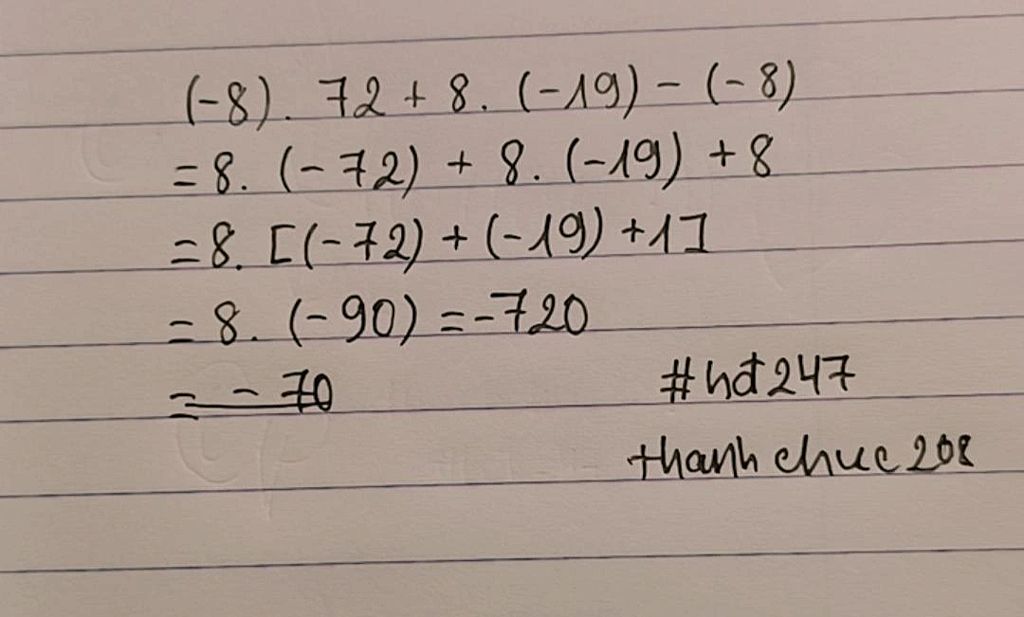 (-8). 72 + 8. (-19) - (-8)
= 8. (-72) + 8. (-19) + 8
= 8. [(-72) + (-19) + 1]
= 8. (-90) = -720
= - 70
#hđ247
thanhchuc208